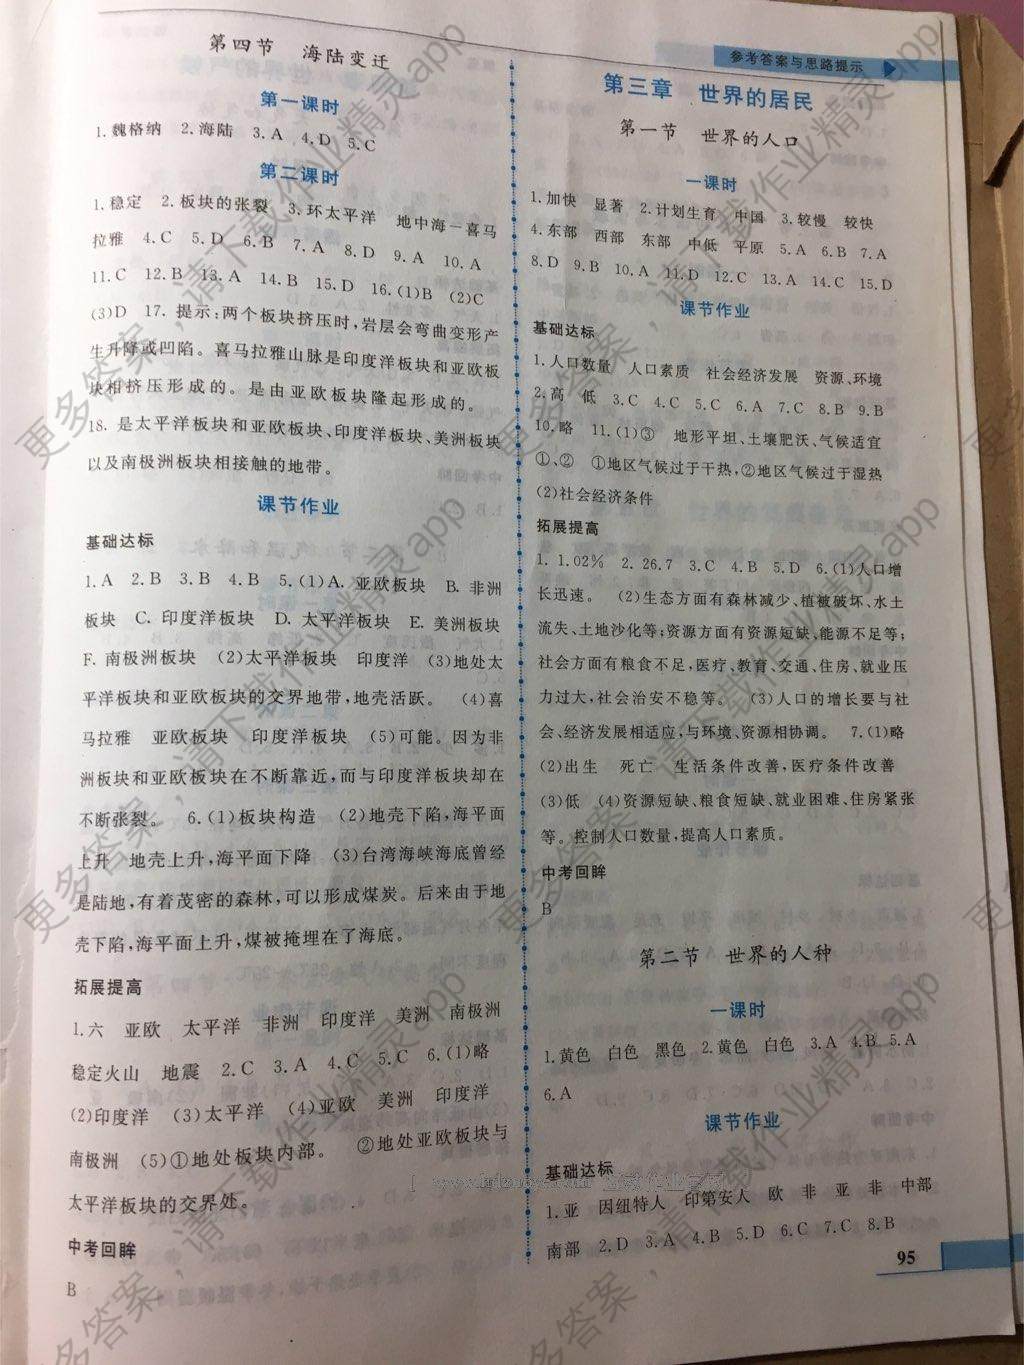 参考答案与思路提示
第四节 海陆变迁
第一课时
1.魏格纳 2.海陆 3.A 4.D 5.C
第二课时
1.稳定 2.板块的张裂 3.环太平洋 地中海—喜马
拉雅 4.C 5.D 6.B 7.A 8.D 9.A 10.A
11.C 12.B 13.A 14.B 15.D 16.(1)B (2)C
(3)D 17.提示:两个板块挤压时,岩层会弯曲变形产
生升降或凹陷。喜马拉雅山脉是印度洋板块和亚欧板
块相挤压形成的。是由亚欧板块隆起形成的。
18.是太平洋板块和亚欧板块、印度洋板块、美洲板块
以及南极洲板块相接触的地带。
课节作业
基础达标
1.A 2.B 3.B 4.B 5.(1)A.亚欧板块 B.非洲
板块 C.印度洋板块 D.太平洋板块 E.美洲板块
F.南极洲板块 (2)太平洋板块 印度洋 (3)地处太
平洋板块和亚欧板块的交界地带,地壳活跃。 (4)喜
马拉雅 亚欧板块 印度洋板块 (5)可能。因为非
洲板块和亚欧板块在不断靠近,而与印度洋板块却在
不断张裂。 6.(1)板块构造 (2)地壳下陷,海平面
上升 地壳上升,海平面下降 (3)台湾海峡海底曾经
是陆地,有着茂密的森林,可以形成煤炭。后来由于地
壳下陷,海平面上升,煤被掩埋在了海底。
拓展提高
1.六 亚欧 太平洋 非洲 印度洋 美洲 南极洲
稳定火山 地震 2.C 3.A 4.C 5.C 6.(1)略
(2)印度洋 (3)太平洋 (4)亚欧 美洲 印度洋
南极洲 (5)①地处板块内部。 ②地处亚欧板块与
太平洋板块的交界处。
中考回眸
B
第三章 世界的居民
第一节 世界的人口
一课时
1.加快 显著 2.计划生育 中国 3.较慢 较快
4.东部 西部 东部 中低 平原 5.A 6.B 7.A
8.D 9.B 10.A 11.D 12.C 13.A 14.C 15.D
课节作业
基础达标
1.人口数量 人口素质 社会经济发展 资源、环境
2.高 低 3.C 4.C 5.C 6.A 7.C 8.B 9.B
10.略 11.(1)③ 地形平坦、土壤肥沃、气候适宜
①、② ①地区气候过于干热,②地区气候过于湿热
(2)社会经济条件
拓展提高
1. 1.02% 2. 26.7 3.C 4.B 5.D 6.(1)人口增
长迅速。 (2)生态方面有森林减少、植被破坏、水土
流失、土地沙化等;资源方面有资源短缺、能源不足等;
社会方面有粮食不足,医疗、教育、交通、住房、就业压
力过大,社会治安不稳等。 (3)人口的增长要与社
会、经济发展相适应,与环境、资源相协调。 7.(1)略
(2)出生 死亡 生活条件改善,医疗条件改善
(3)低 (4)资源短缺、粮食短缺、就业困难、住房紧张
等。控制人口数量,提高人口素质。
中考回眸
B
第二节 世界的人种
一课时
1.黄色 白色 黑色 2.黄色 白色 3.A 4.B 5.A
6.A
课节作业
基础达标
1.亚 因纽特人 印第安人 欧 非 亚 非 中部
南部 2.D 3.A 4.B 5.D 6.C 7.C 8.B
95
更多答案,请下载作业精灵app
更多答案,请下载作业精灵app
更多答案,请下载作业精灵app
更多答案,请下载作业精灵app